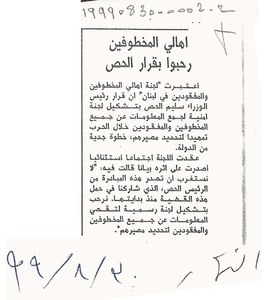 19990830-0002-2
اهالي المخطوفين
رحبوا بقرار الحص
اعتبرت "لجنة اهالي المخطوفين
والمفقودين في لبنان" ان قرار رئيس
الوزراء سليم الحص بتشكيل لجنة
امنية لجمع المعلومات عن جميع
المخطوفين والمفقودين خلال الحرب
تمهيدا لتحديد مصيرهم، خطوة جدية
من الدولة.
عقدت اللجنة اجتماعا استثنائيا
اصدرت على اثره بيانا قالت فيه: "لا
نستغرب ان تصدر هذه المبادرة من
الرئيس الحص، الذي شاركنا في حمل
هذه القضية منذ بدايتها. نرحب
بتشكيل لجنة رسمية لتقصي
المعلومات عن جميع المخطوفين
والمفقودين لتحديد مصيرهم".
النهار ٩٩/٨/٣٠